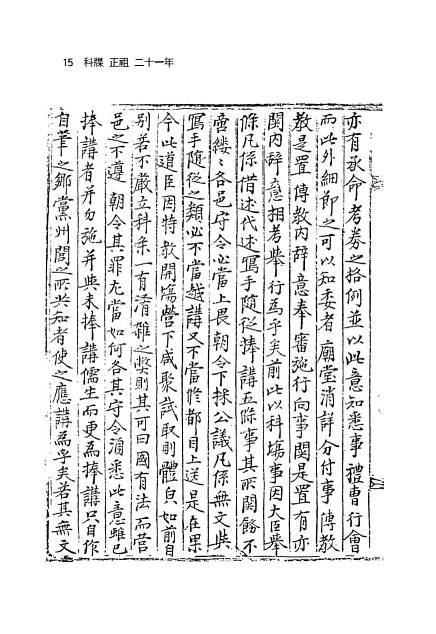 15 科牒 正祖 二十一年
亦有承命考券之格例並以此意知悉事禮曹行會
而此外細節之可以知委者廟堂消詳分付事傳教
教是置傳教內辞意奉審施行向事關是置有亦
関内辞意相考舉行為乎矣前此以科場事因大臣舉
條凡係借述代述寫手隨從捧講五條事其所関飭不
啻縷〻各邑守令必當上畏朝令下採公議凡係無文與
寫手隨從之類必不當越講又不當修都目上送是在果
今此道臣因特教開場營下咸聚試取則體自如前自
別若不嚴立科条一有淆雜之獘則其可曰國有法而營
邑之不遵朝令其罪尤當如何各其守令須悉此意雖已
捧講者并勿施并與未捧講儒生而更為捧講只自作
自筆之鄉黨州閭之所共知者使之應講為乎矣若其無文